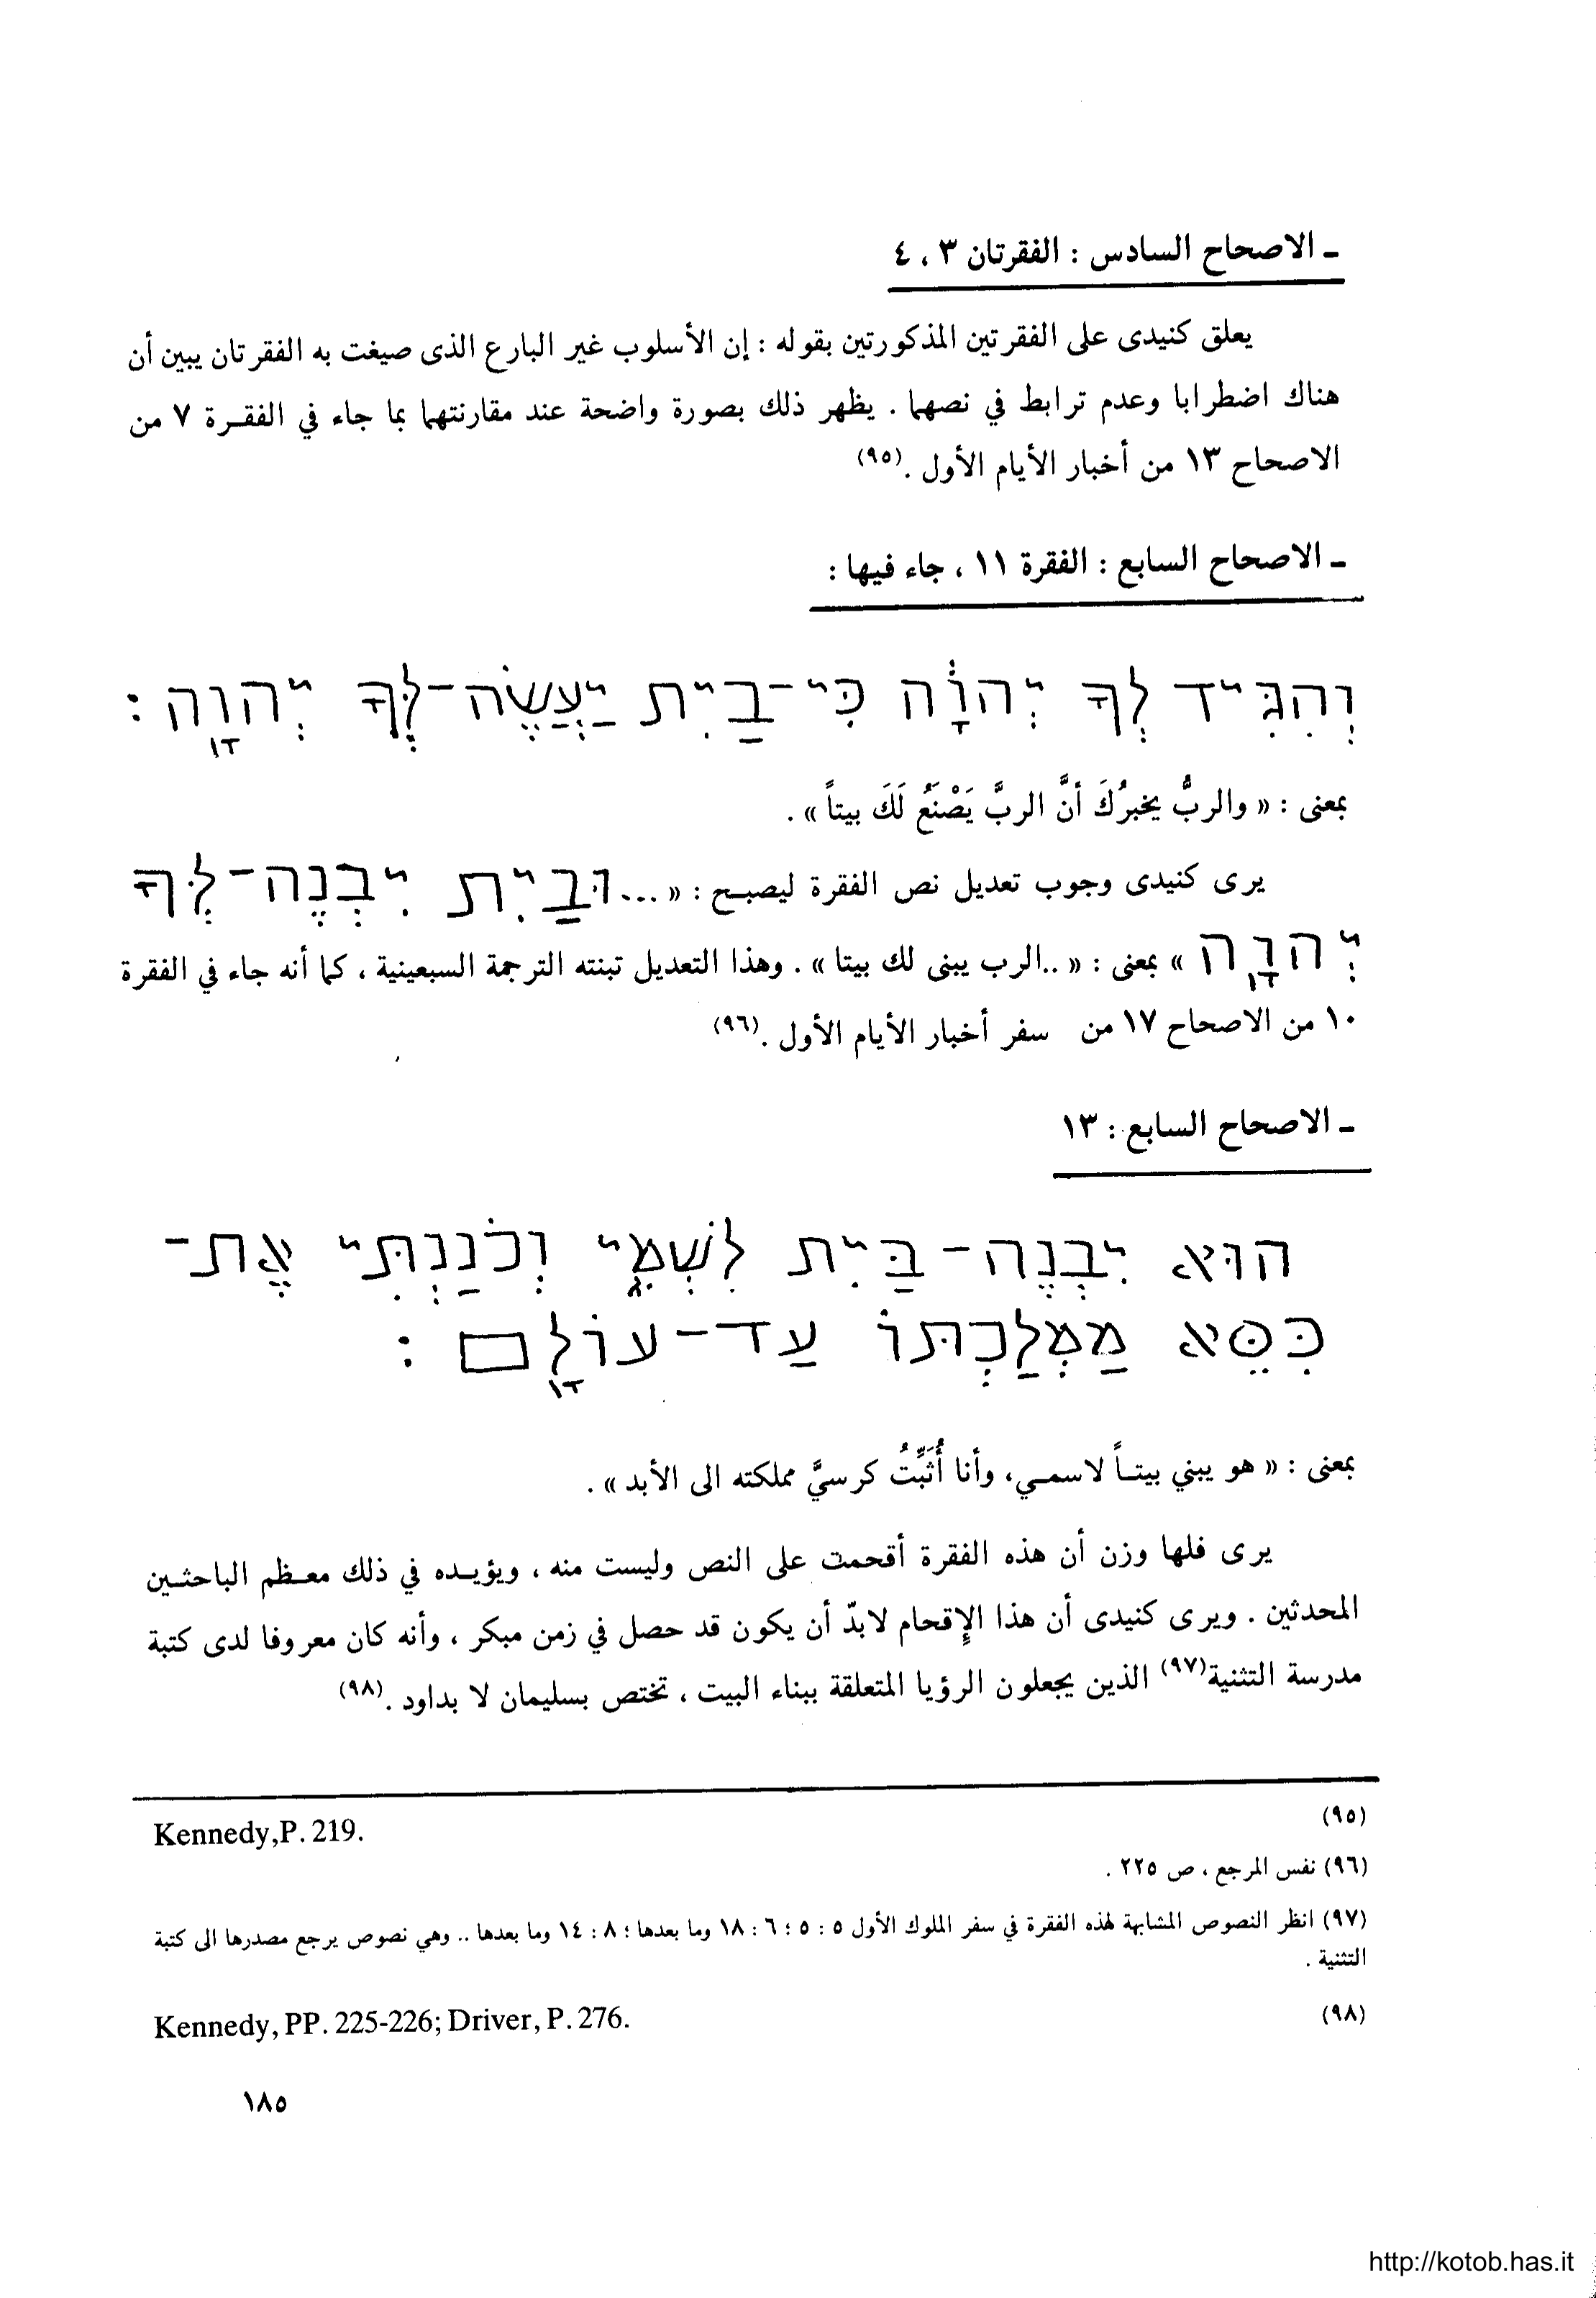 ـ الاصحاح السادس : الفقرتان ٣ ، ٤
يعلق كنيدى على الفقرتين المذكورتين بقوله : إن الأسلوب غير البارع الذى صيغت به الفقرتان يبين أن
هناك اضطرابا وعدم ترابط في نصهما . يظهر ذلك بصورة واضحة عند مقارنتهما بما جاء في الفقرة ٧ من
الاصحاح ١٣ من أخبار الأيام الأول .(٩٥)
ـ الاصحاح السابع : الفقرة ١١ ، جاء فيها :
וְהִגִּיד לְךָ יְהוָֹה כִּי־בַיִת יַעֲשֶׂה־לְּךָ יְהוָה :
بمعنى : « والربُّ يخبرُكَ أنَّ الربَّ يَصْنَعُ لَكَ بيتاً » .
يرى كنيدى وجوب تعديل نص الفقرة ليصبح : « ...וּבַיִת יִבְנֶה־לְּךָ
יְהוָה » بمعنى : « ..الرب يبنى لك بيتا » . وهذا التعديل تبنته الترجمة السبعينية ، كما أنه جاء في الفقرة
١٠ من الاصحاح ١٧ من سفر أخبار الأيام الأول .(٩٦)
ـ الاصحاح السابع : ١٣
הוּא יִבְנֶה־בַּיִת לִשְׁמִי וְכֹנַנְתִּי אֶת־
כִּסֵּא מַמְלַכְתּוֹ עַד־עוֹלָם :
بمعنى : « هو يبني بيتاً لاسمي، وأنا أُثَبِّتُ كرسيَّ مملكته الى الأبد » .
يرى فلها وزن أن هذه الفقرة أقحمت على النص وليست منه ، ويؤيده في ذلك معظم الباحثين
المحدثين . ويرى كنيدى أن هذا الإقحام لابدّ أن يكون قد حصل في زمن مبكر ، وأنه كان معروفا لدى كتبة
مدرسة التثنية(٩٧) الذين يجعلون الرؤيا المتعلقة ببناء البيت ، تختص بسليمان لا بداود .(٩٨)
(٩٥) Kennedy,P. 219.
(٩٦) نفس المرجع ، ص ٢٢٥ .
(٩٧) انظر النصوص المشابهة لهذه الفقرة في سفر الملوك الأول ٥ : ٥ ؛ ٦ : ١٨ وما بعدها ؛ ٨ : ١٤ وما بعدها .. وهي نصوص يرجع مصدرها الى كتبة
التثنية .
(٩٨) Kennedy, PP. 225-226; Driver, P. 276.
١٨٥
http://kotob.has.it